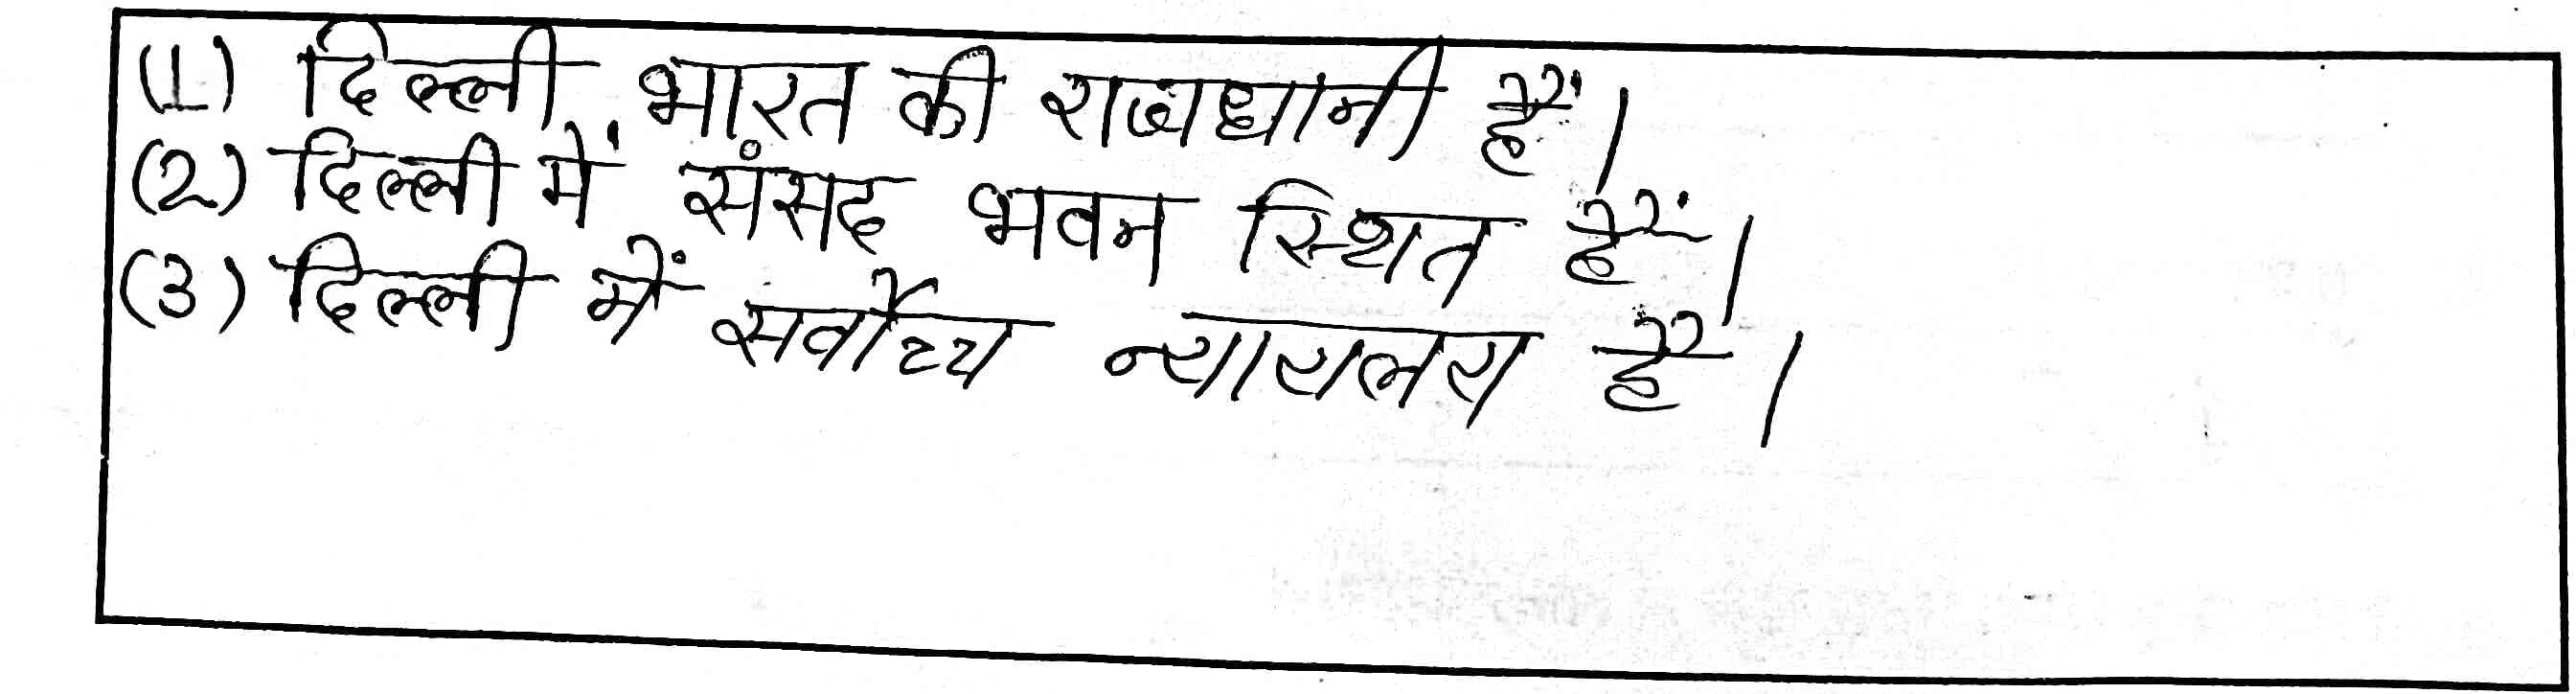 (1) दिल्ली भारत की राजधानी हैं।
(2) दिल्ली में संसद भवन स्थित हैं।
(3) दिल्ली में सर्वोच्च न्यायलय है।